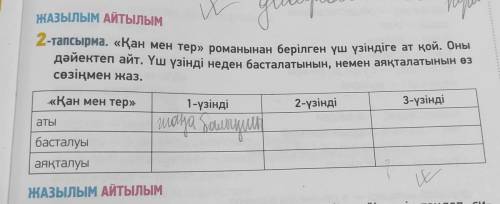 ЖАЗЫЛЫМ АЙТЫЛЫМ
2-тапсырма. «Қан мен тер» романынан берілген үш үзіндіге ат қой. Оны
дәйектеп айт. Үш үзінді неден басталатынын, немен аяқталатынын өз
сөзіңмен жаз.
«Қан мен тер» 1-үзінді 2-үзінді 3-үзінді
аты жаңа
басталуы
аяқталуы
ЖАЗЫЛЫМ АЙТЫЛЫМ